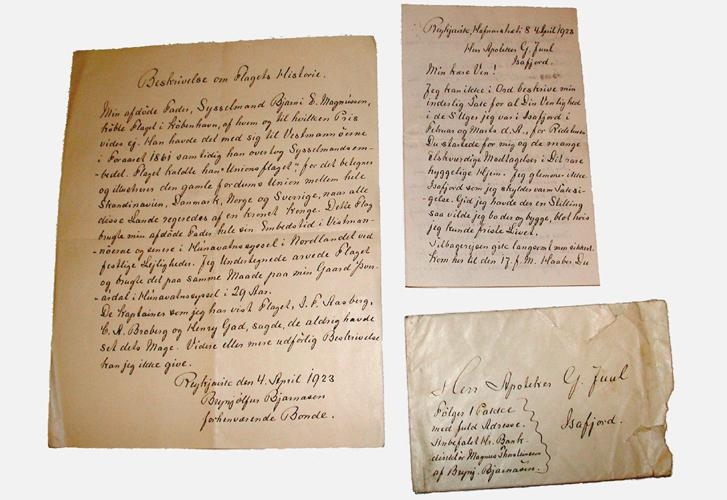 Beskrivelse om Flagets Historie.
Min afdöde Fader, Sysselmand Bjarni E. Magnússon,
köbte Flaget i Köbenhavn, af hvem og til hvilken Pris
vides ej. Han havde det med sig til Vestmannöerne
i Foraaret 1861 samtidig han overtog Sysselmandsem-
-bedet. Flaget kaldte han "Unionsflaget" for det betegner
og illustrerer den gamle fordums Union mellem hele
Skandinavien, Danmark, Norge og Sverige, naar alle
disse Lande regeredes af en kronet Konge. Dette Flag
brugte min afdöde Fader hele sin Embedstid i Vestman-
-nöerne og senere i Húnavatnssyssel i Nordlandet ved
festlige Lejligheder. Jeg Undertegnede arvede Flaget
og brugte det paa samme Maade paa min Gaard Þver-
-árdal i Húnavatnssyssel i 29 Aar.
De Kaptainer som jeg har vist Flaget, I. F. Aasberg,
C. A. Broberg og Henry Gad, sagde, de aldrig havde
set dets Mage. Videre eller mere udförlig Beskrivelse
kan jeg ikke give.
Reykjavik den 4. April 1923
Brynjólfur Bjarnason
forhenværende Bonde.
Reykjavik, Hafnarstræti 8 4 April 1923
Herr Apoteker G. Juul
Isafjord.
Min kære Ven!
Jeg kan ikke i Ord beskrive min
inderlig Tak for al Din Venlighed
i de Dage jeg var i Isafjord i
Februar og Marts d. A., for Rideturen
Du startede for mig og de mange
elskværdige Modtagelser i Dit rare
hyggelige Hjem. Jeg glemmer ikke
Isafjord som jeg skylder varm Taksi-
-gelse. Gid jeg havde der en Stilling
saa vilde jeg bo der og bygge, blot hvis
jeg kunde friste Livet.
Tilbagerejsen gik langsomt men sikkert.
Kom her til den 17. f. M. Haaber Du
Herr Apoteker G. Juul
Isafjord.
Fölger 1 Pakke
med fuld Adresse.
Anbefalet Hr. Bank-
direktör Magnus Thorsteinsson
af Brynj. Bjarnason.